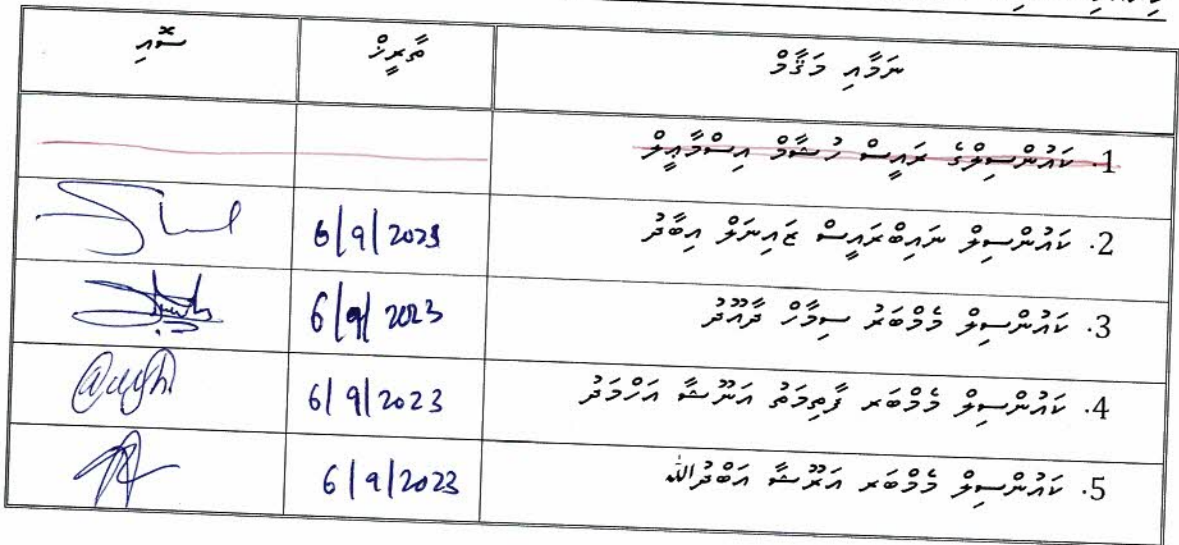 ނަމާއި މަޤާމް ތާރީޚް ސޮއި
1. ކައުންސިލްގެ ރައީސް ހުޝާމް އިސްމާޢީލް
2. ކައުންސިލް ނައިބްރައީސް ޒައިނަލް އިބާދު 6/9/2023
3. ކައުންސިލް މެމްބަރު ސިމާހް ދާއޫދު 6/9/2023
4. ކައުންސިލް މެމްބަރ ފާތިމަތު އަނޫޝާ އަހްމަދު 6/9/2023
5. ކައުންސިލް މެމްބަރ އަރޫޝާ އަބްދުﷲ 6/9/2023